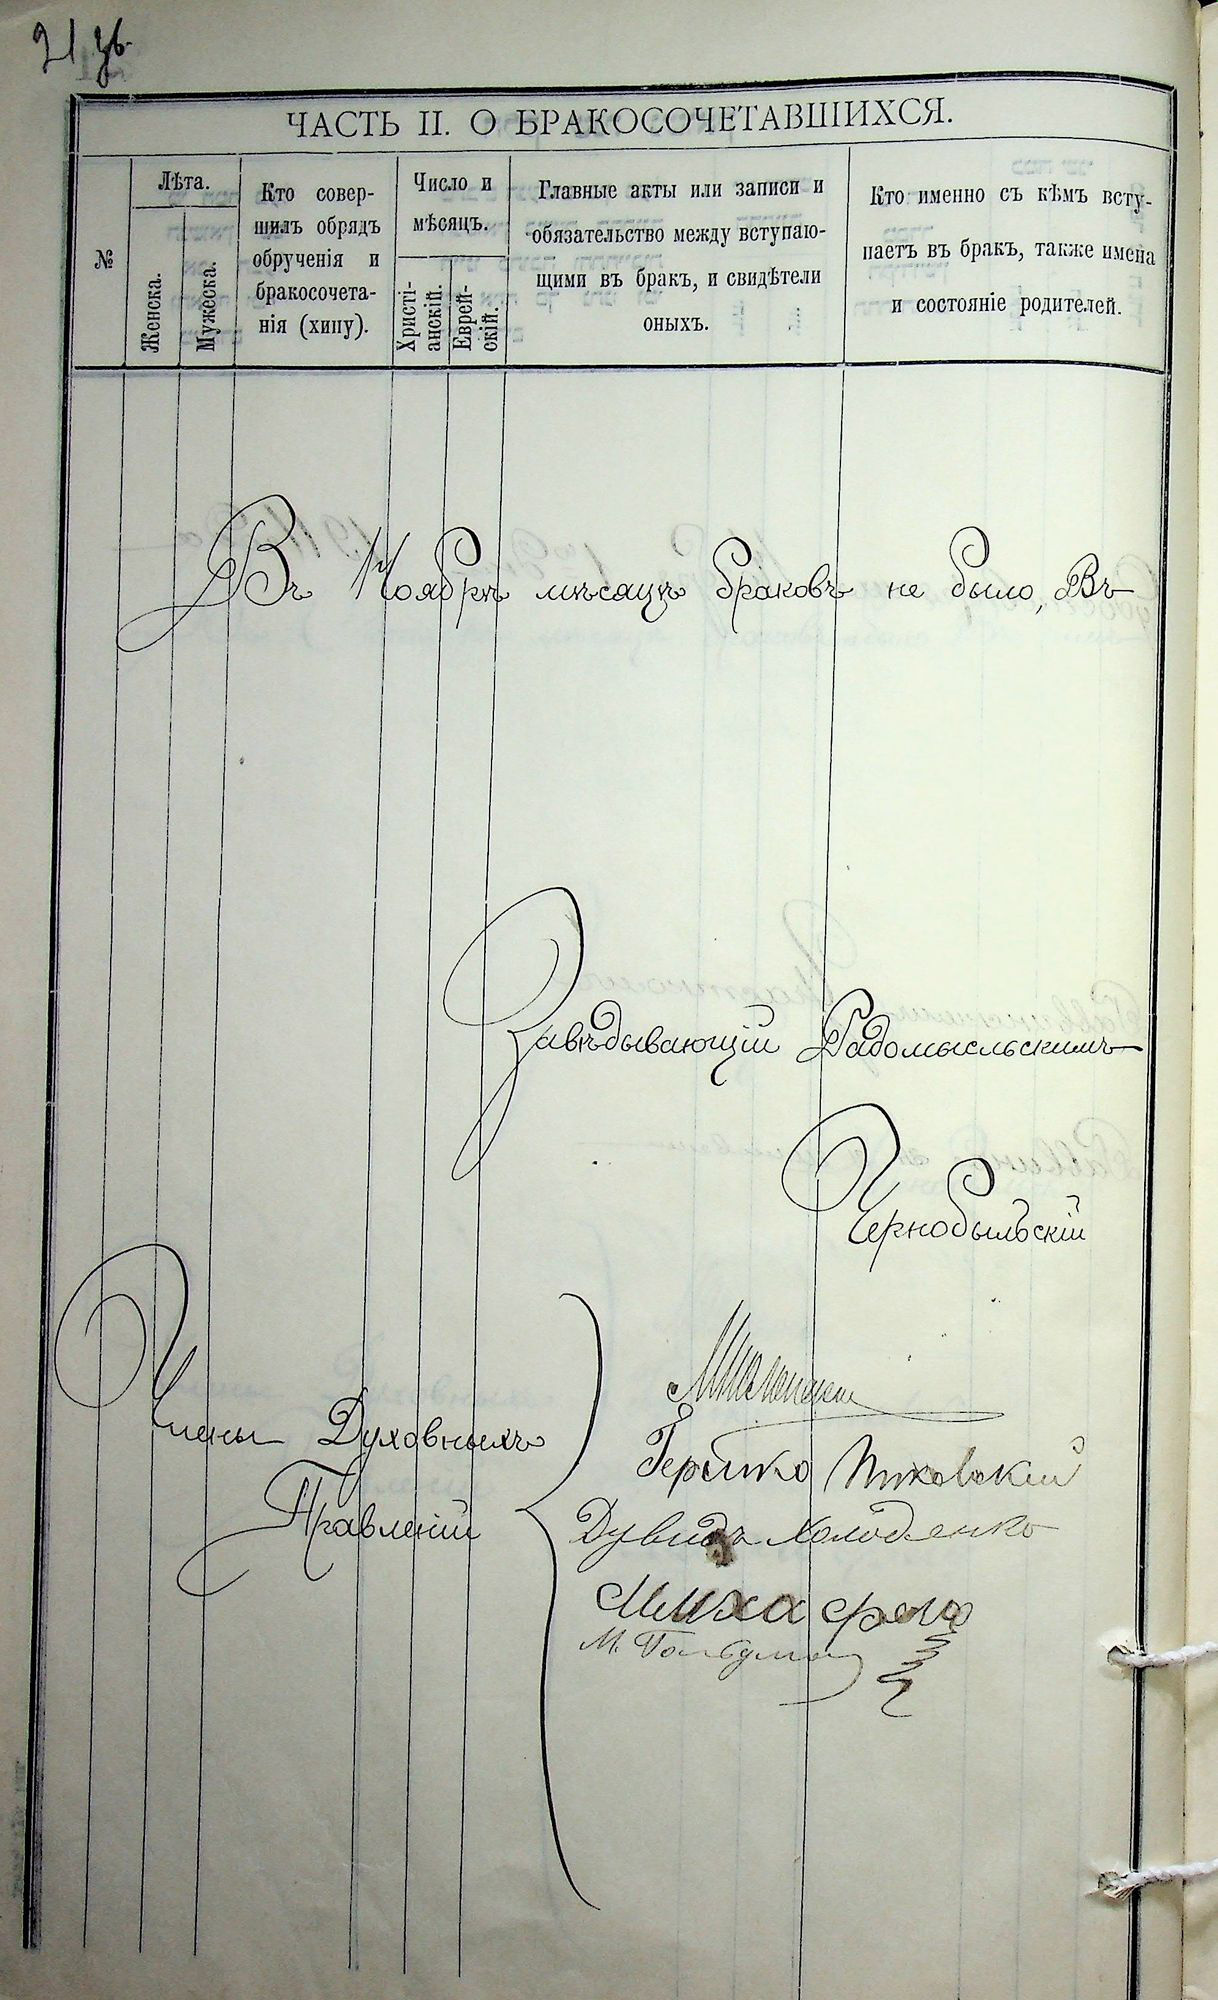 21 зв.
ЧАСТЬ II. О БРАКОСОЧЕТАВШИХСЯ.
№
Лѣта.
Женска.
Мужеска.
Кто совер-
шилъ обрядъ
обрученія и
бракосочета-
нія (хипу).
Число и
мѣсяцъ.
Христі-
анскій.
Еврей-
скій.
Главные акты или записи и
обязательство между вступаю-
щими въ бракъ, и свидѣтели
оныхъ.
Кто именно съ кѣмъ всту-
паетъ въ бракъ, также имена
и состояніе родителей.
Въ Ноябрѣ мѣсяцѣ браковъ не было, Въ
Завѣдывающій Радомысльскимъ
Чернобыльскій
Члены Духовныхъ
Правленій
Гершко
Дувидъ Холоденко
М.